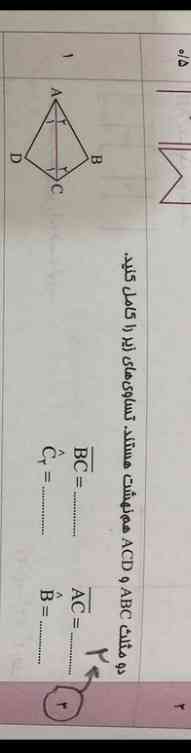 ۰/۵
۲
دو مثلث ABC و ACD هم‌نهشت هستند. تساوی‌های زیر را کامل کنید.
۳
۲
BC = ............ AC = ............
Ĉ۲ = ............ B̂ = ............
B
A ۱ ۲ ۱ ۲ C
D
۱